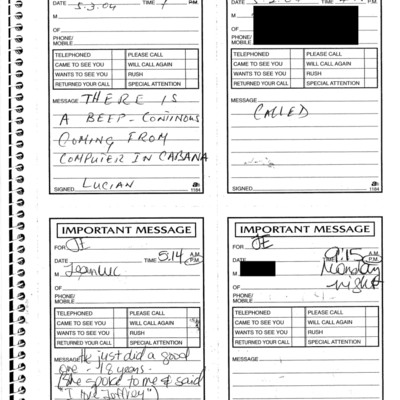 DATE 5.3.04 TIME P.M.
M
OF
PHONE/
MOBILE
TELEPHONED PLEASE CALL
CAME TO SEE YOU WILL CALL AGAIN
WANTS TO SEE YOU RUSH
RETURNED YOUR CALL SPECIAL ATTENTION
MESSAGE THERE IS
A BEEP - CONTINOUS
COMING FROM
COMPUTER IN CABANA
LUCIAN
SIGNED 1184
DATE TIME P.M.
M
OF
PHONE/
MOBILE
TELEPHONED PLEASE CALL
CAME TO SEE YOU WILL CALL AGAIN
WANTS TO SEE YOU RUSH
RETURNED YOUR CALL SPECIAL ATTENTION
MESSAGE
CALLED
SIGNED 1184
IMPORTANT MESSAGE
FOR JE
DATE TIME 5.14 A.M. P.M.
M Jean Luc
OF
PHONE/
MOBILE
TELEPHONED PLEASE CALL
CAME TO SEE YOU WILL CALL AGAIN
WANTS TO SEE YOU RUSH
RETURNED YOUR CALL SPECIAL ATTENTION
MESSAGE He just did a good
one - 18 years -
(She spoke to me & said
"I love Jeffrey")
IMPORTANT MESSAGE
FOR JE
DATE TIME 9:15 A.M. P.M.
M Monday
OF night
PHONE/
MOBILE
TELEPHONED PLEASE CALL
CAME TO SEE YOU WILL CALL AGAIN
WANTS TO SEE YOU RUSH
RETURNED YOUR CALL SPECIAL ATTENTION
MESSAGE